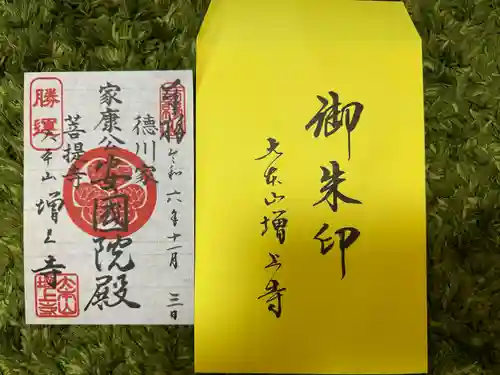 奉拝
徳川家
令和六年十一月三日
家康公
安國院殿
菩提寺
勝運
大本山
増上寺
大本山
増上寺
御朱印
大本山増上寺